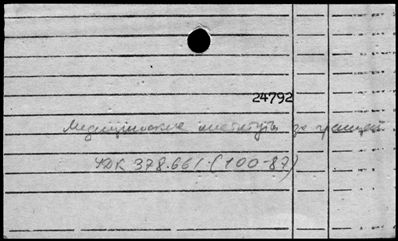 24792
Медицинские институты за границей
УДК 378.661(100-87)